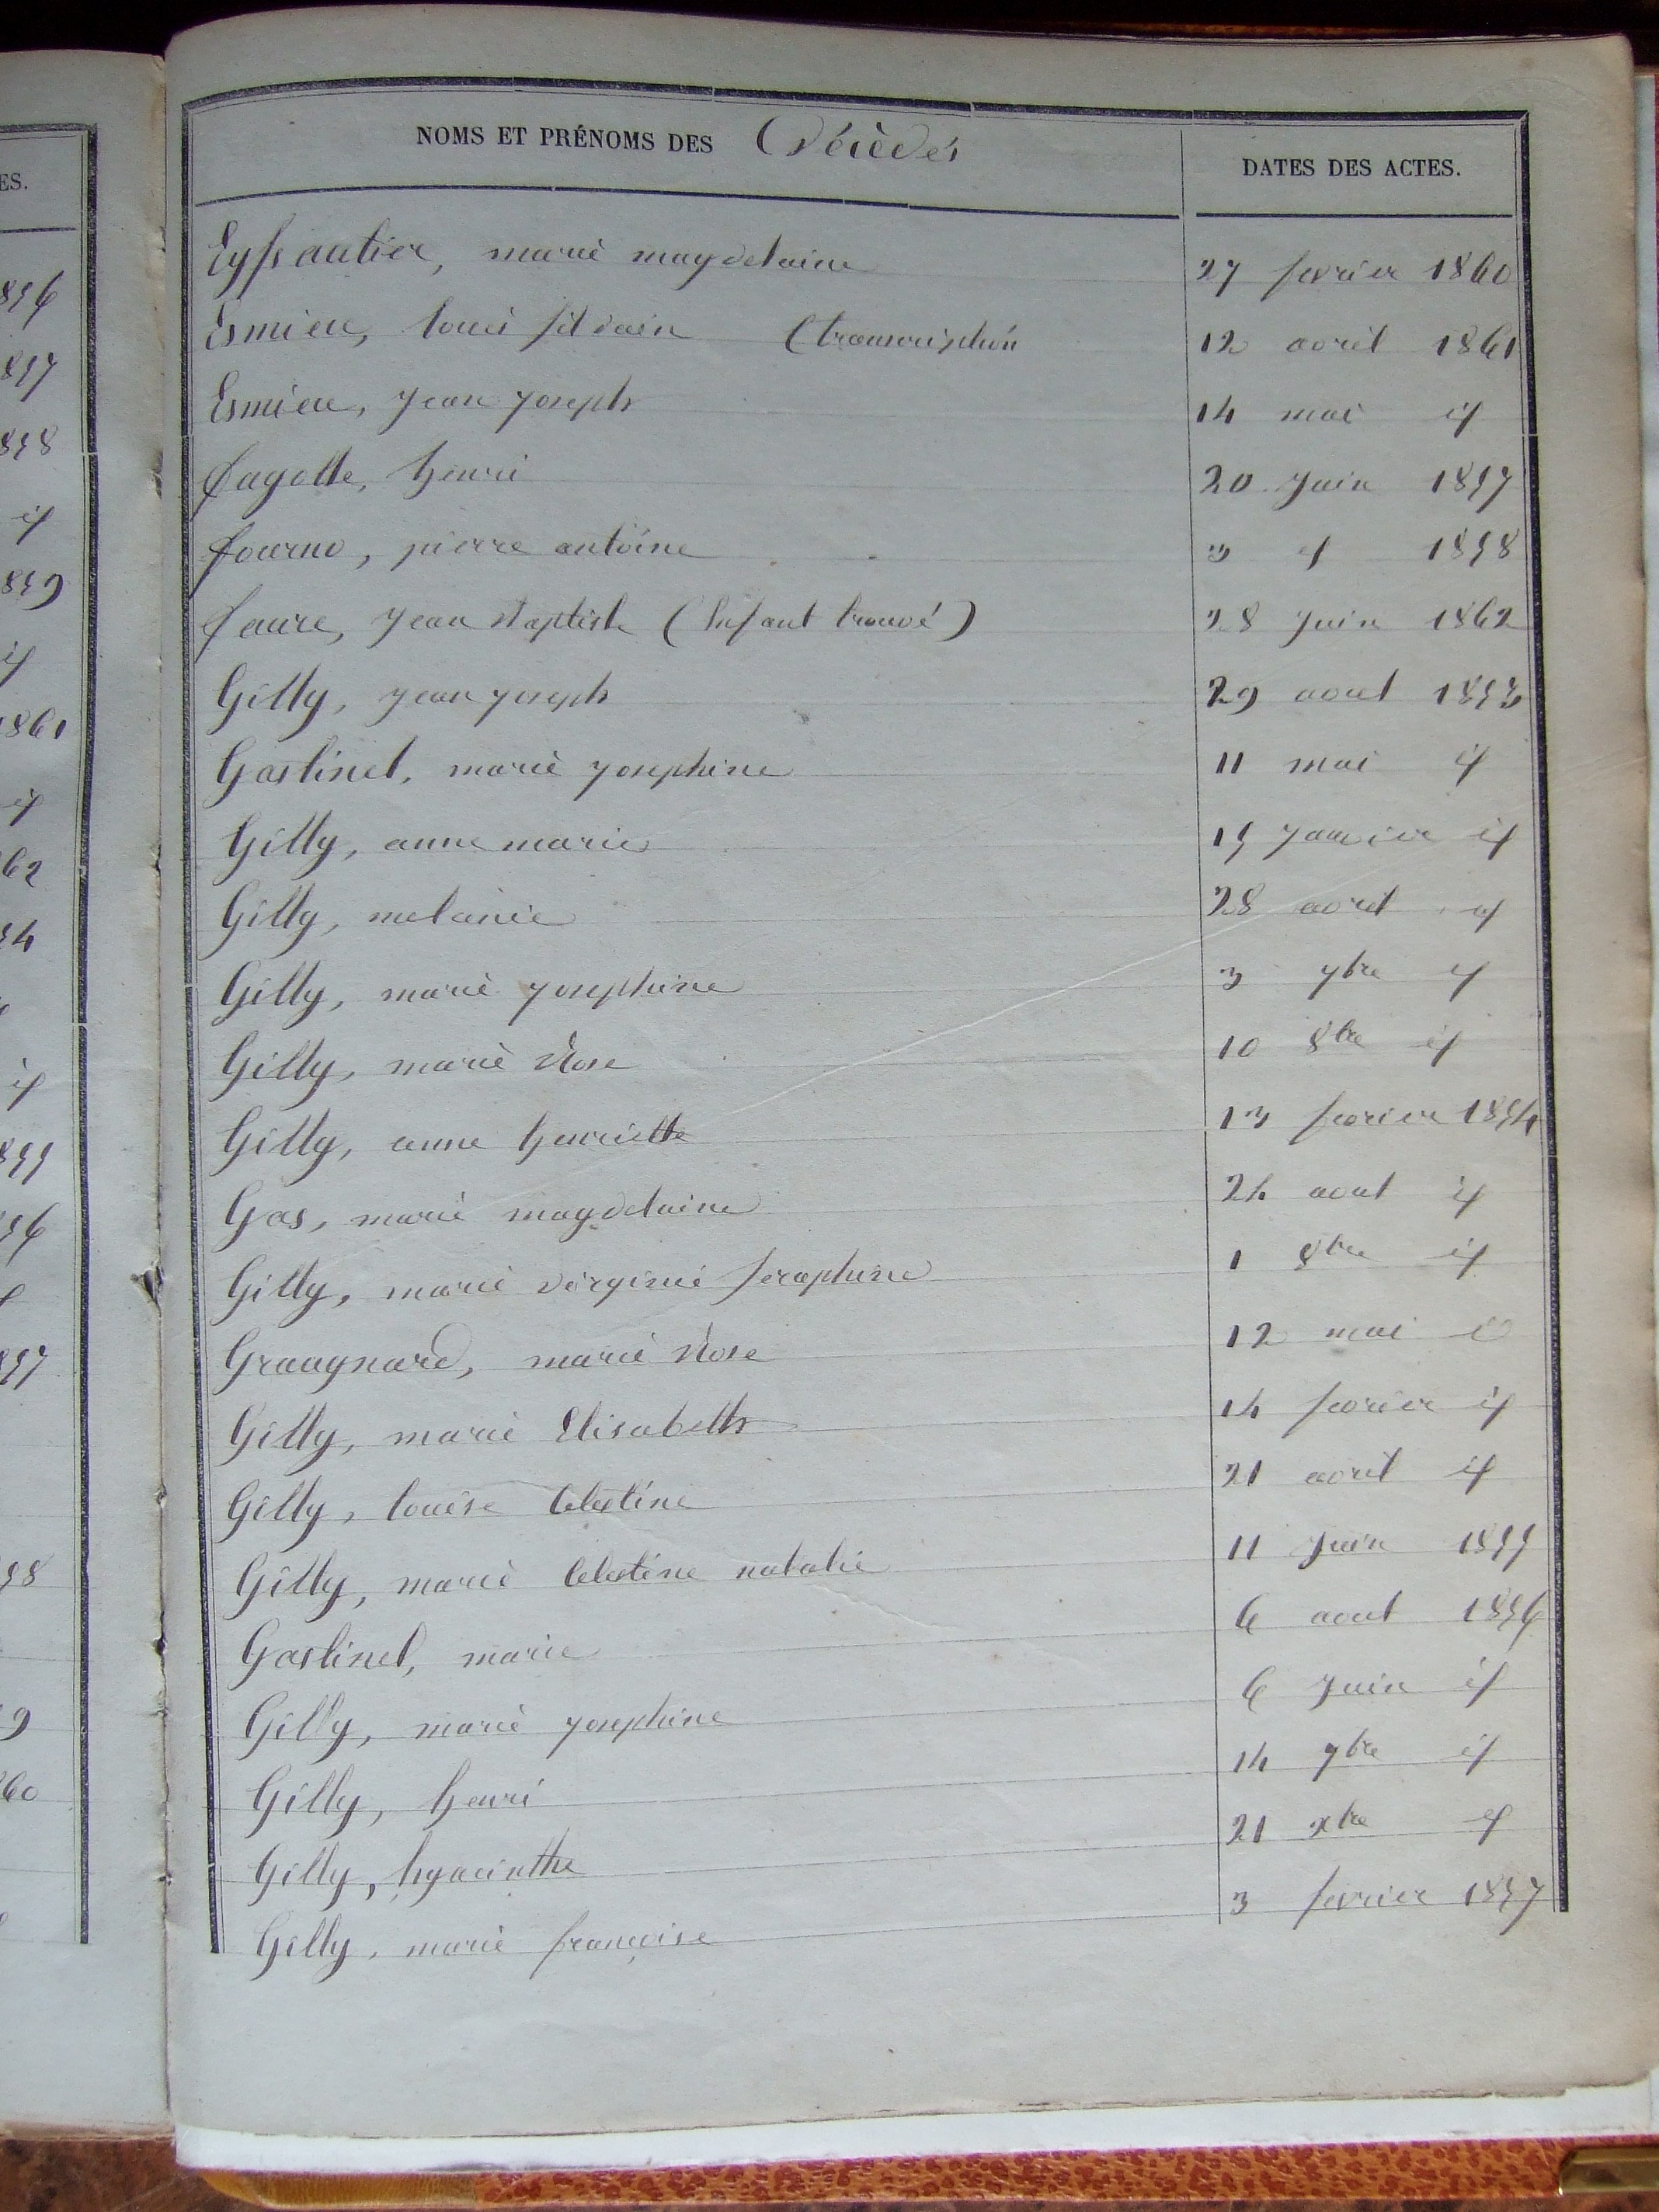 NOMS ET PRÉNOMS DES Décédés DATES DES ACTES.
Eyssautier, marie magdelaine 27 fevrier 1860
Esmieu, louis silvain (transcription 12 avril 1861
Esmieu, jean joseph 14 mai id
fagotte, henri 20 juin 1857
fourno, pierre antoine 3 id 1858
faure, jean Baptiste (Enfant trouvé) 28 juin 1862
Gilly, jean joseph 29 aout 1853
Gastinel, marie josephine 11 mai id
Gilly, anne marie 15 janvier id
Gilly, melanie 28 avril id
Gilly, marie josephine 3 7bre id
Gilly, marie Rose 10 8bre id
Gilly, anne henriette 13 fevrier 1854
Gas, marie magdelaine 24 aout id
Gilly, marie virginie seraphine 1 8bre id
Graugnard, marie Rose 12 mai id
Gilly, marie Elisabeth 14 fevrier id
Gilly, louise Celestine 21 avril id
Gilly, marie Celestine natalie 11 juin 1855
Gastinel, marie 6 aout 1856
Gilly, marie josephine 6 juin id
Gilly, henri 14 7bre id
Gilly, hyacinthe 21 xbre id
Gilly, marie françoise 3 fevrier 1857
ES.
856
857
858
id
859
id
1861
id
62
54
id
855
56
857
58
9
60